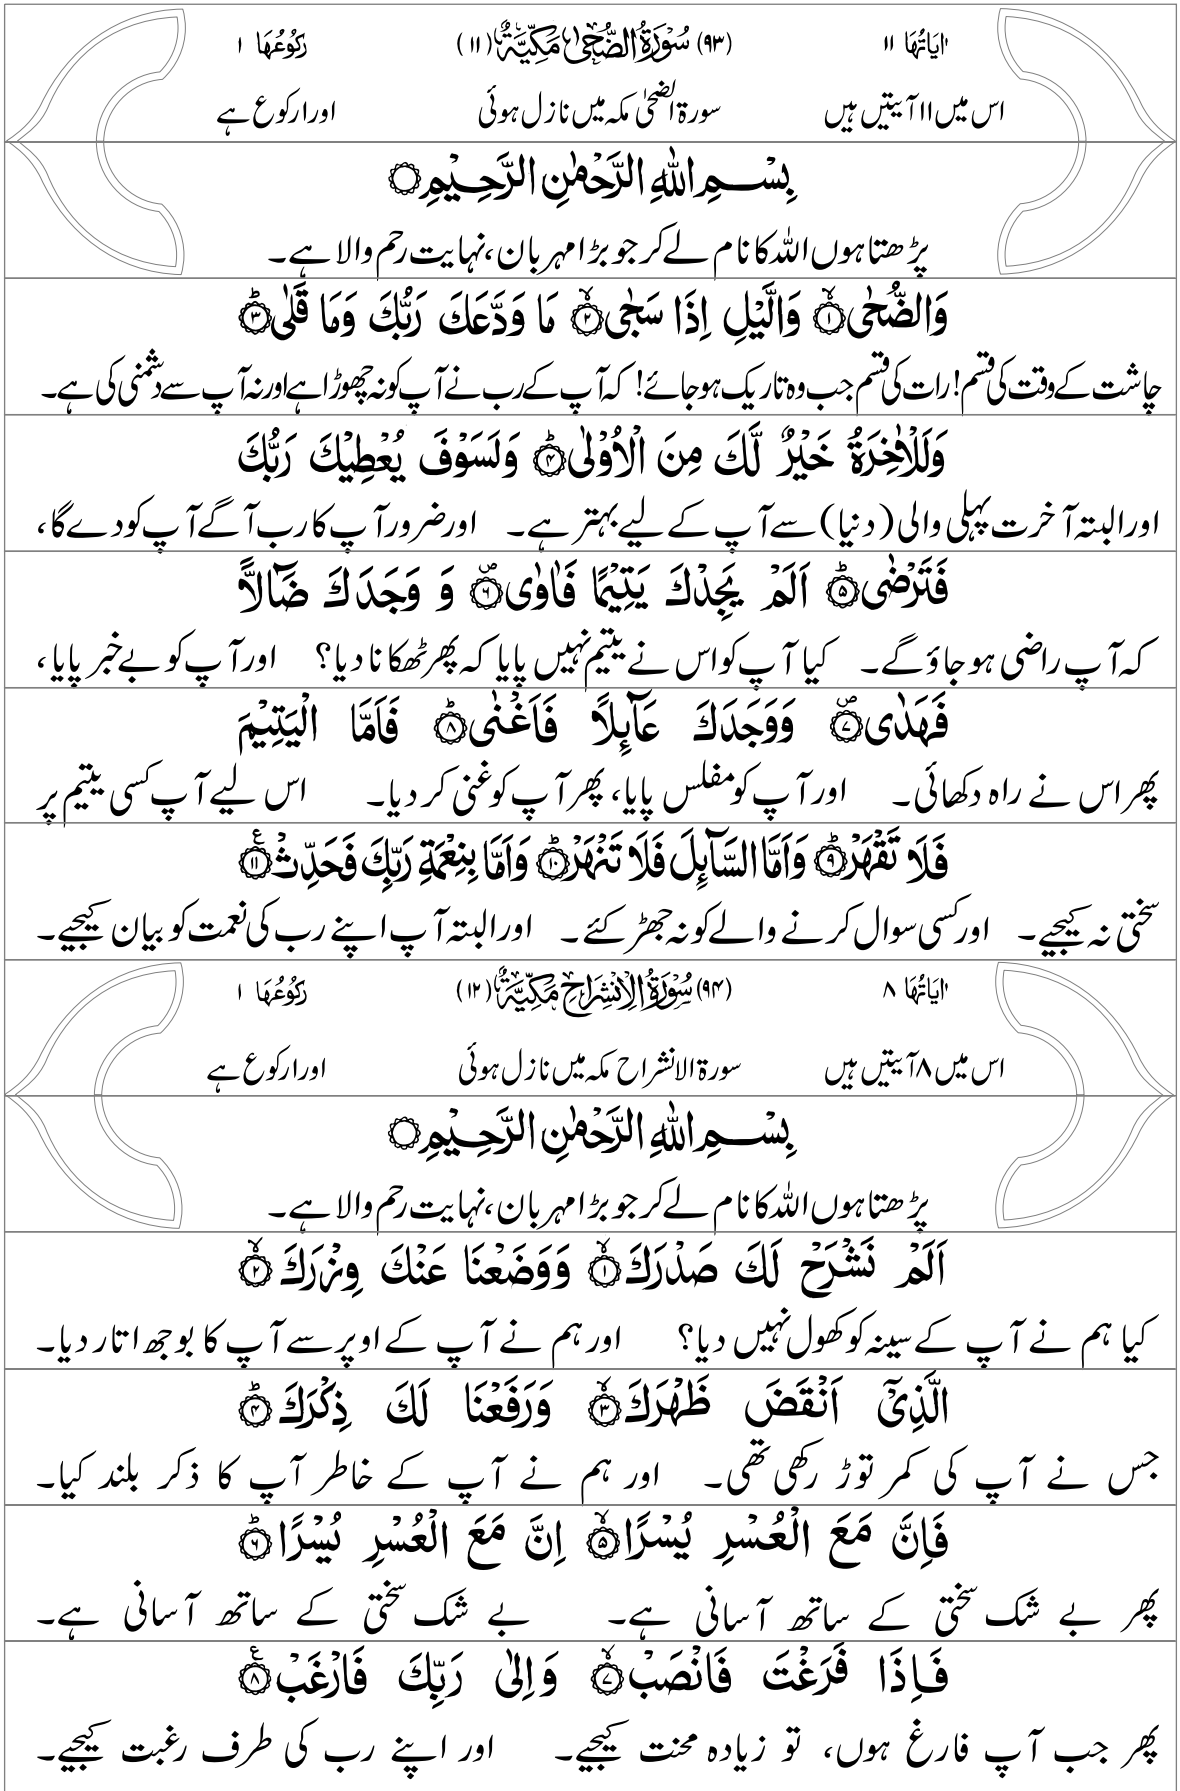 اٰیَاتُهَا ۱۱ (۹۳) سُوْرَةُ الضُّحٰى مَكِّيَّةٌ (۱۱) رُكُوْعُهَا ۱
اس میں ۱۱ آیتیں ہیں سورۃ الضحیٰ مکہ میں نازل ہوئی اور ۱ رکوع ہے
بِسْمِ اللّٰهِ الرَّحْمٰنِ الرَّحِيْمِ۝
پڑھتا ہوں اللہ کا نام لے کر جو بڑا مہربان، نہایت رحم والا ہے۔
وَالضُّحٰى۝۱ۙ وَالَّيْلِ اِذَا سَجٰى۝۲ۙ مَا وَدَّعَكَ رَبُّكَ وَمَا قَلٰى۝۳ؕ
چاشت کے وقت کی قسم! رات کی قسم جب وہ تاریک ہو جائے! کہ آپ کے رب نے آپ کو نہ چھوڑا ہے اور نہ آپ سے دشمنی کی ہے۔
وَلَلْاٰخِرَةُ خَيْرٌ لَّكَ مِنَ الْاُوْلٰى۝۴ؕ وَلَسَوْفَ يُعْطِيْكَ رَبُّكَ
اور البتہ آخرت پہلی والی (دنیا) سے آپ کے لیے بہتر ہے۔ اور ضرور آپ کا رب آگے آپ کو دے گا،
فَتَرْضٰى۝۵ؕ اَلَمْ يَجِدْكَ يَتِيْمًا فَاٰوٰى۝۶۪ وَ وَجَدَكَ ضَآلًّا
کہ آپ راضی ہو جاؤ گے۔ کیا آپ کو اس نے یتیم نہیں پایا کہ پھر ٹھکانا دیا؟ اور آپ کو بے خبر پایا،
فَهَدٰى۝۷۪ وَوَجَدَكَ عَآئِلًا فَاَغْنٰى۝۸ؕ فَاَمَّا الْيَتِيْمَ
پھر اس نے راہ دکھائی۔ اور آپ کو مفلس پایا، پھر آپ کو غنی کر دیا۔ اس لیے آپ کسی یتیم پر
فَلَا تَقْهَرْ۝۹ؕ وَاَمَّا السَّآئِلَ فَلَا تَنْهَرْ۝۱۰ؕ وَاَمَّا بِنِعْمَةِ رَبِّكَ فَحَدِّثْ۝۱۱ۧ
سختی نہ کیجیے۔ اور کسی سوال کرنے والے کو نہ جھڑکئے۔ اور البتہ آپ اپنے رب کی نعمت کو بیان کیجیے۔
اٰیَاتُهَا ۸ (۹۴) سُوْرَةُ الْاِنْشِرَاحِ مَكِّيَّةٌ (۱۲) رُكُوْعُهَا ۱
اس میں ۸ آیتیں ہیں سورۃ الانشراح مکہ میں نازل ہوئی اور ۱ رکوع ہے
بِسْمِ اللّٰهِ الرَّحْمٰنِ الرَّحِيْمِ۝
پڑھتا ہوں اللہ کا نام لے کر جو بڑا مہربان، نہایت رحم والا ہے۔
اَلَمْ نَشْرَحْ لَكَ صَدْرَكَ۝۱ۙ وَوَضَعْنَا عَنْكَ وِزْرَكَ۝۲ۙ
کیا ہم نے آپ کے سینہ کو کھول نہیں دیا؟ اور ہم نے آپ کے اوپر سے آپ کا بوجھ اتار دیا۔
الَّذِيْۤ اَنْقَضَ ظَهْرَكَ۝۳ۙ وَرَفَعْنَا لَكَ ذِكْرَكَ۝۴ؕ
جس نے آپ کی کمر توڑ رکھی تھی۔ اور ہم نے آپ کے خاطر آپ کا ذکر بلند کیا۔
فَاِنَّ مَعَ الْعُسْرِ يُسْرًا۝۵ۙ اِنَّ مَعَ الْعُسْرِ يُسْرًا۝۶ؕ
پھر بے شک سختی کے ساتھ آسانی ہے۔ بے شک سختی کے ساتھ آسانی ہے۔
فَاِذَا فَرَغْتَ فَانْصَبْ۝۷ۙ وَاِلٰى رَبِّكَ فَارْغَبْ۝۸ۧ
پھر جب آپ فارغ ہوں، تو زیادہ محنت کیجیے۔ اور اپنے رب کی طرف رغبت کیجیے۔